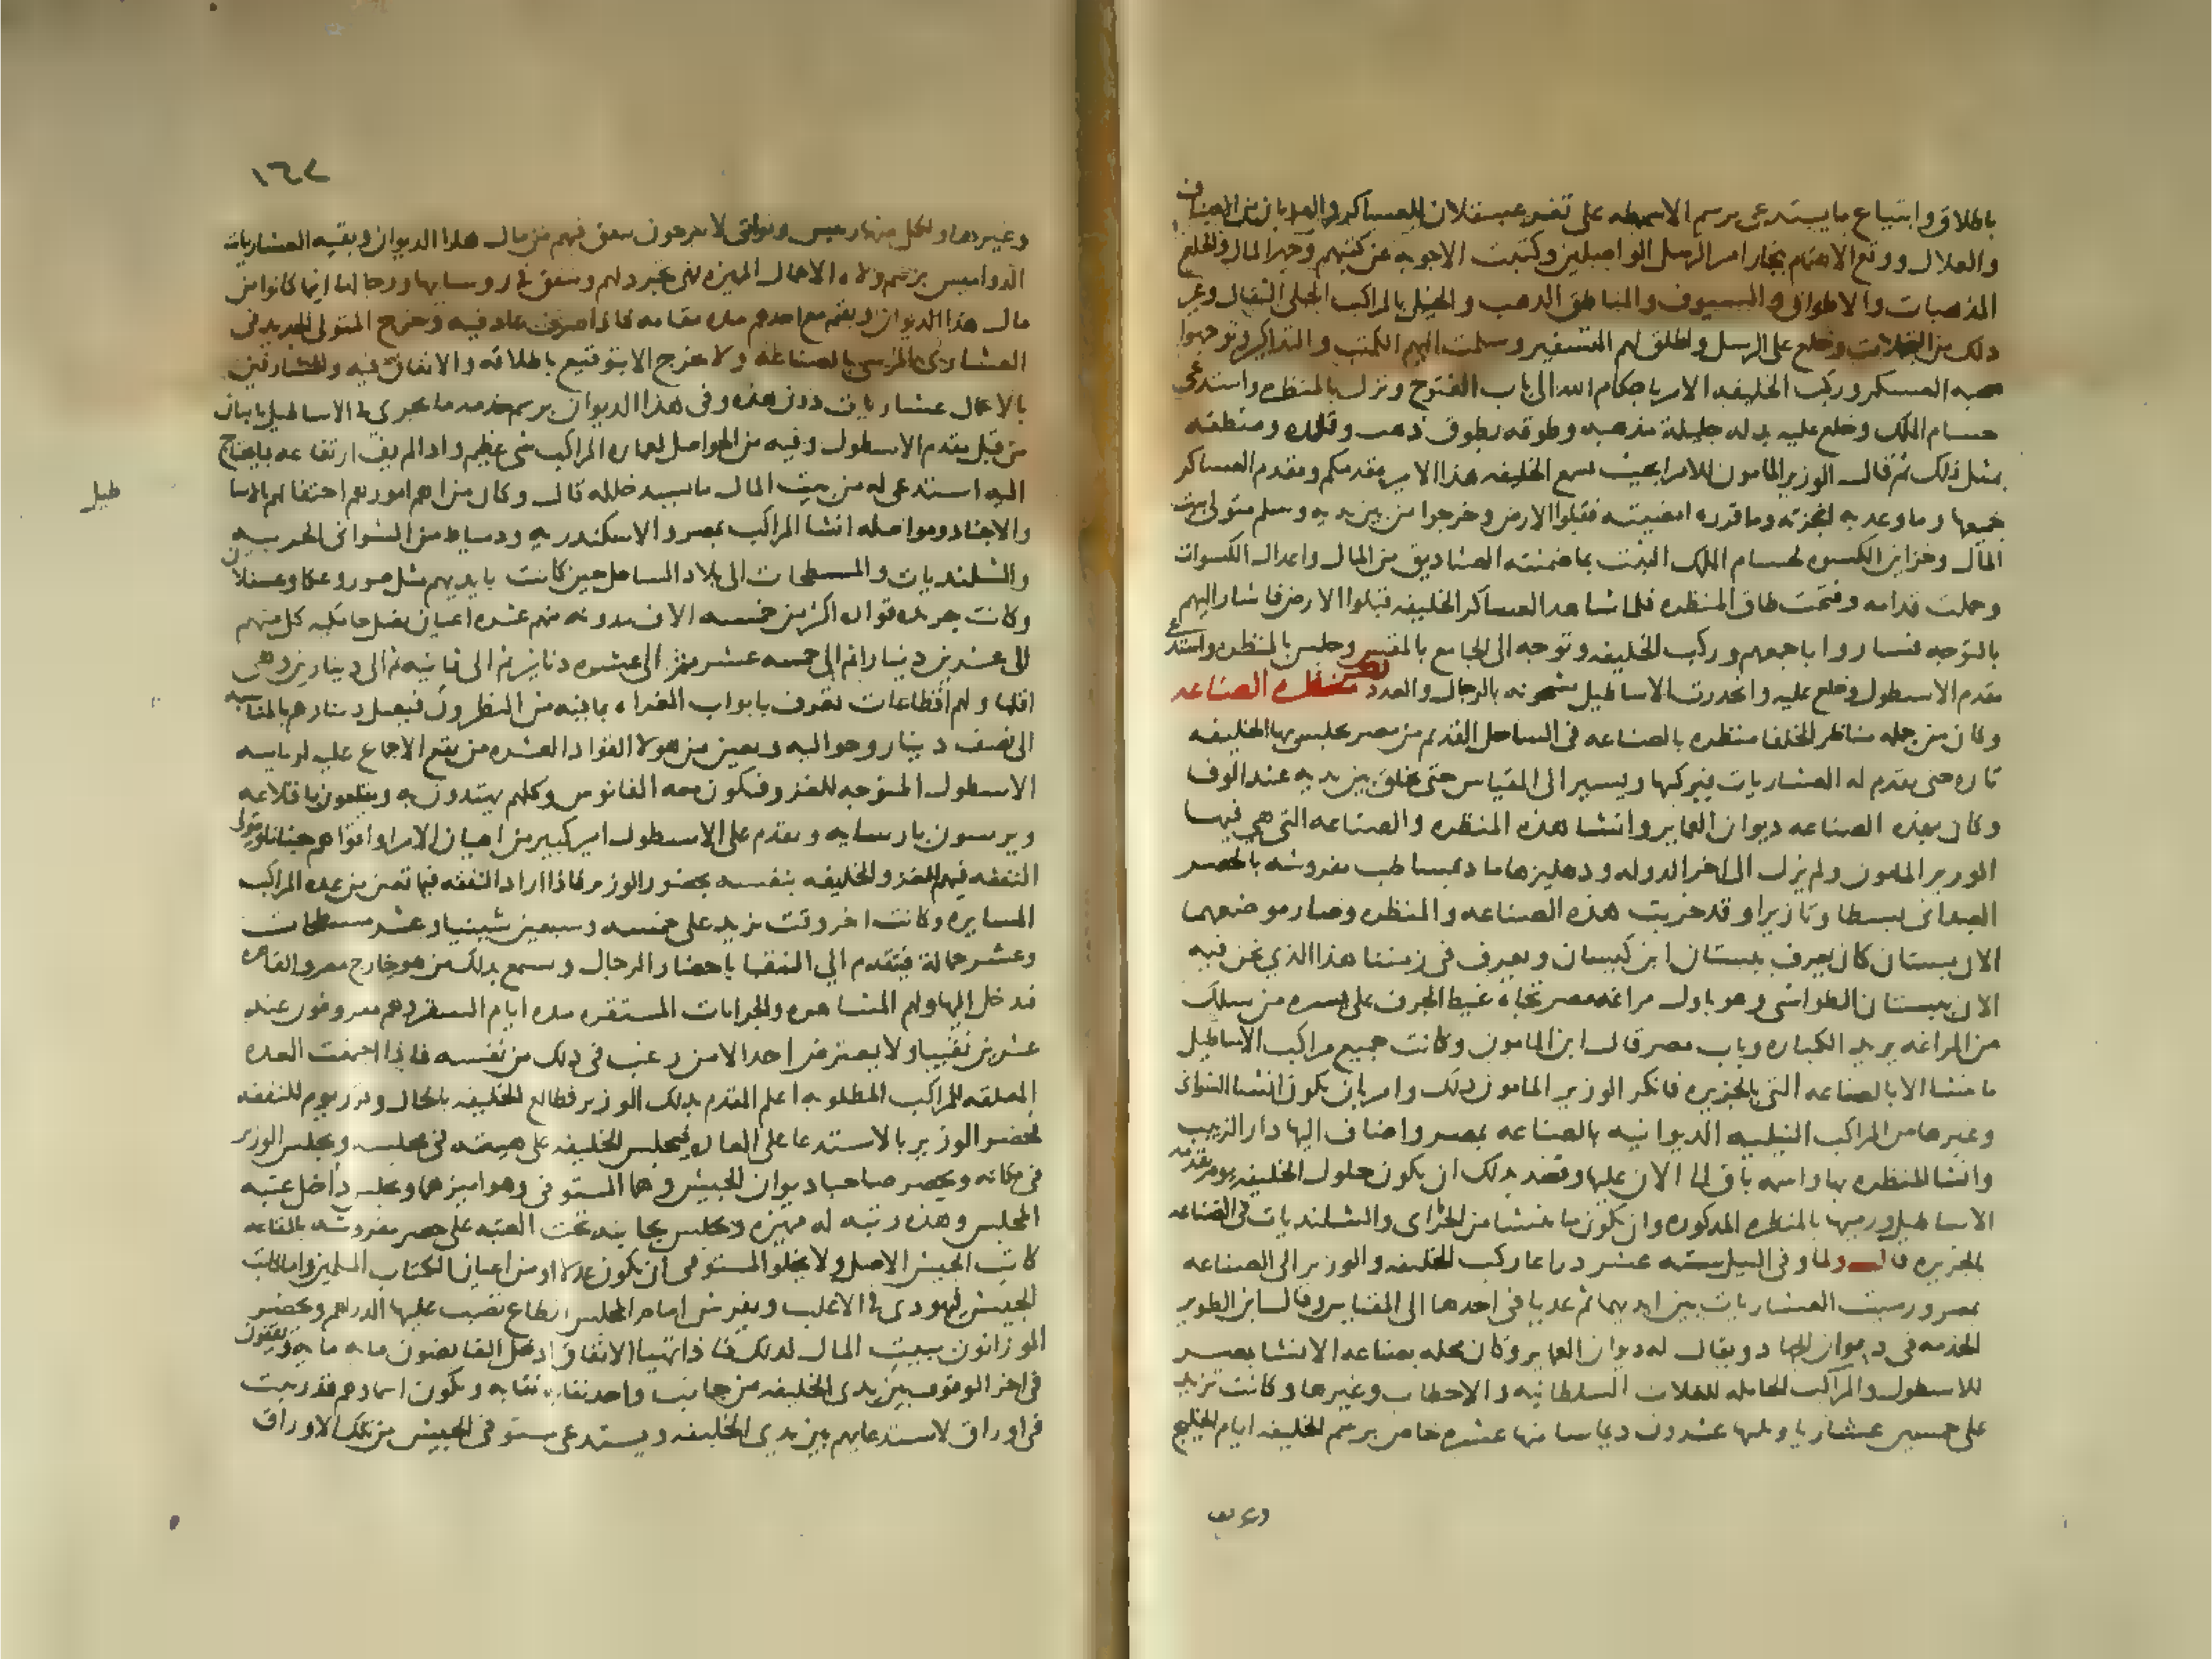 باطلاق وابتياع ما يستدعى برسم الاسمطه على ثغر عسقلان للعساكر والعربان من الاصناف
والغلال ووقع الاهتمام بنجاز امر الرسل الواصلين وكتبت الاجوبه عن كتبهم وجهز المال والخلع
المذهبات والاطواق والسيوف والمناطق الذهب والخيل بالمراكب الحلى الثقال وغير
ذلك من وخلع على الرسل واطلق لهم التسفير وسلمت اليهم الكتب والتذاكر وتوجهوا
صحبه العسكر وركب الخليفه الامر باحكام الله الى باب الفتوح ونزل بالمنظره واستدعى
حسام الملك وخلع عليه بدله جليلة مذهبه وطوقه بطوق ذهب وقلده ومنطقه
بمثل ذلك ثم قال الوزير المامون للامرا بحيث يسمع الخليفه هذا الامير مقدمكم ومقدم العساكر
جميعها وما وعد به انجزته وما قرره امضيته فقبلوا الارض وخرجوا من بين يديه وسلم متولى بيت
المال وخزاين الكسوه لحسام الملك الثبت بما ضمنته الصناديق من المال واعدال الكسوات
وحملت قدامه وفتحت طاق المنظره فلما شاهد العساكر الخليفه قبلوا الارض فاشار اليهم
بالتوجه فساروا باجمعهم وركب الخليفه وتوجه الى الجامع بالمقس وجلس بالمنظره واستدعى
مقدم الاسطول وخلع عليه وانحدرت الاساطيل مشحونه بالرجال والعدد ذكر منظره الصناعه
وكان من جمله مناظر الخلفا منظره بالصناعه فى الساحل القديم من مصر يجلس بها الخليفه
تاره حتى يقدم له العشاريات فيركبها ويسير الى المقياس حتى يخلق بين يديه عند الوفا
وكان بهذه الصناعه ديوان العماير وانشا هذه المنظره والصناعه التى هى فيها
الوزير المامون ولم يزل الى اخر الدوله ودهليزها ماد بمساطب مفروشه بالحصر
العبدانى بسطا وتازيرا وقد خربت هذه الصناعه والمنظره وصار موضعهما
الان بستان كان يعرف ببستان ابن كيسان ويعرف فى زمننا هذا الذي نحن فيه
الان ببستان الطواشى وهو باول مراغه مصر تجاه غيط الجرف على يسره من سلك
من المراغه يريد الكباره وباب مصر قال ابن المامون وكانت جميع مراكب الاساطيل
ما تنشا الا بالصناعه التى بالجزيره فانكر الوزير المامون ذلك وامر بان يكون انشا الشوانى
وغيرها من المراكب النيليه الديوانيه بالصناعه بمصر واضاف اليها دار الزبيب
وانشا المنظره بها واسمه باق الى الان عليها وقصد بذلك ان يكون حلول الخليفه يوم تقدمه
الاساطيل ورميها بالمنظره المذكوره وان يكون ما ينشا من الحرابى والشلنديات فى الصناعه
بالجزيره قال ولما وفى النيل سته عشر دراعا ركب الخليفه والوزير الى الصناعه
بمصر ورميت العشاريات بين ايديهما ثم عديا فى احدها الى المقياس وقال ابن الطوير
الخدمه فى ديوان الجهاد ويقال له ديوان العماير وكان محله بصناعه الانشا بمصر
للاسطول والمراكب الحامله للغلات السلطانيه والاحطاب وغيرها وكانت تزيد
على خمسين عشاريا ويليها عشرون ديماسا منها عشره خاص برسم الخليفه ايام الخليج
وغيرها
١٦٧
وغيرها ولكل منها رييس ونواتى لا يبرحون ينفق فيهم من مال هذا الديوان وبقيه العشاريات
الدواميس برسم ولاه الاعمال المميزه فهى تجرد لهم وينفق فى روسايها ورجالها اينما كانوا من
مال هذا الديوان وتقيم مع احدهم مده مقامه فاذا صرف عاد فيه وخرج المتولى الجديد فى
العشارى المرسى بالصناعه ولا يخرج الا بتوقيع باطلاقه والانفاق فيه وللمشارفين
بالاعمال عشاريات دون هذه وفى هذا الديوان برسم خدمه ما يجرى فى الاساطيل نايبان
من قبل مقدم الاسطول وفيه من الحواصل لعماره المراكب شى عظيم واذا لم يف ارتفاعه بما يحتاج
اليه استدعى له من بيت المال ما يسد خلله قال وكان من اهم امورهم احتفالهم بالاسا
طيل
والاجناد ومواصله انشا المراكب بمصر والاسكندريه ودمياط من الشوانى الحربيه
والشلنديات والمسطحات الى بلاد الساحل حين كانت بايديهم مثل صور وعكا وعسقلان
وكانت جريده قواده اكثر من خمسه الاف مدونه منهم عشره اعيان يصل جامكيه كل منهم
الى عشرين دينارا ثم الى خمسه عشر ثم الى عشره دنانير ثم الى ثمانيه ثم الى دينارين وهى
اقلها ولهم اقطاعات تعرف بابواب الغزاه بما فيه من النطرون فيصل دينارهم بالمناسبه
الى نصف دينار وحواليه ويعين من هولا القواد العشره من يقع الاجماع عليه لرياسه
الاسطول المتوجه للغزو فيكون معه الفانوس وكلهم يهتدون به ويقلعون باقلاعه
ويرسون بارسايه ويقدم على الاسطول امير كبير من اعيان الامرا واقواهم جنانا ويتولى
النفقه فيهم للغزو الخليفه بنفسه بحضور الوزير فاذا اراد النفقه فيما تعين من عده المراكب
السايره وكانت اخر وقت تزيد على خمسه وسبعين شينيا وعشر مسطحات
وعشر حمالة فيتقدم الى النقبا باحضار الرجال ويسمع بذلك من هو خارج مصر والقاهره
فيدخل اليها ولهم المشاهره والجرايات المستقره مده ايام السفر وهم معروفون عند
عشرين نقيبا ولا يعترض احدا الا من رغب فى ذلك من نفسه فاذا اجتمعت العده
المعلقه للمراكب المطلوبه اعلم المقدم بذلك الوزير فطالع الخليفه بالحال وقرر يوم للنفقه
فحضر الوزير بالاستدعا على العاده فيجلس الخليفه على هيئته فى مجلسه ويجلس الوزير
فى مكانه ويحضر صاحبا ديوان الجيش وهما المستوفى وهو اميزهما ويجلس داخل عتبه
المجلس وهذه رتبه له مميزه ويجلس بجانبه تحت العتبه على حصر مفروشه بالقاعه
كاتب الجيش الاصل ولا يخلو المستوفى ان يكون عدلا او من اعيان الكتاب المسلمين واما كاتب
الجيش فيهودى فى الاغلب ويفرش امام المجلس انطاع تصب عليها الدراهم ويحضر
الوزانون ببيت المال لذلك فاذا تهيا الانفاق ادخل القابضون مايه مايه ويقفون
فى اخر الوقوف بين يدى الخليفه من جانب واحد نقابه نقابه ويكون اسماوهم قد رتبت
فى اوراق لاستدعايهم بين يدى الخليفه ويستدعى مستوفى الجيش من تلك الاوراق